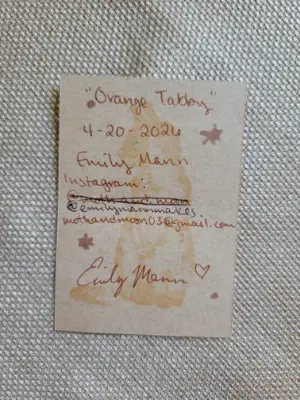 "Orange Tabby"
4-20-2026
Emily Mann
Instagram:
@emilymannmakes
mothandmoon03@gmail.com
Emily Mann